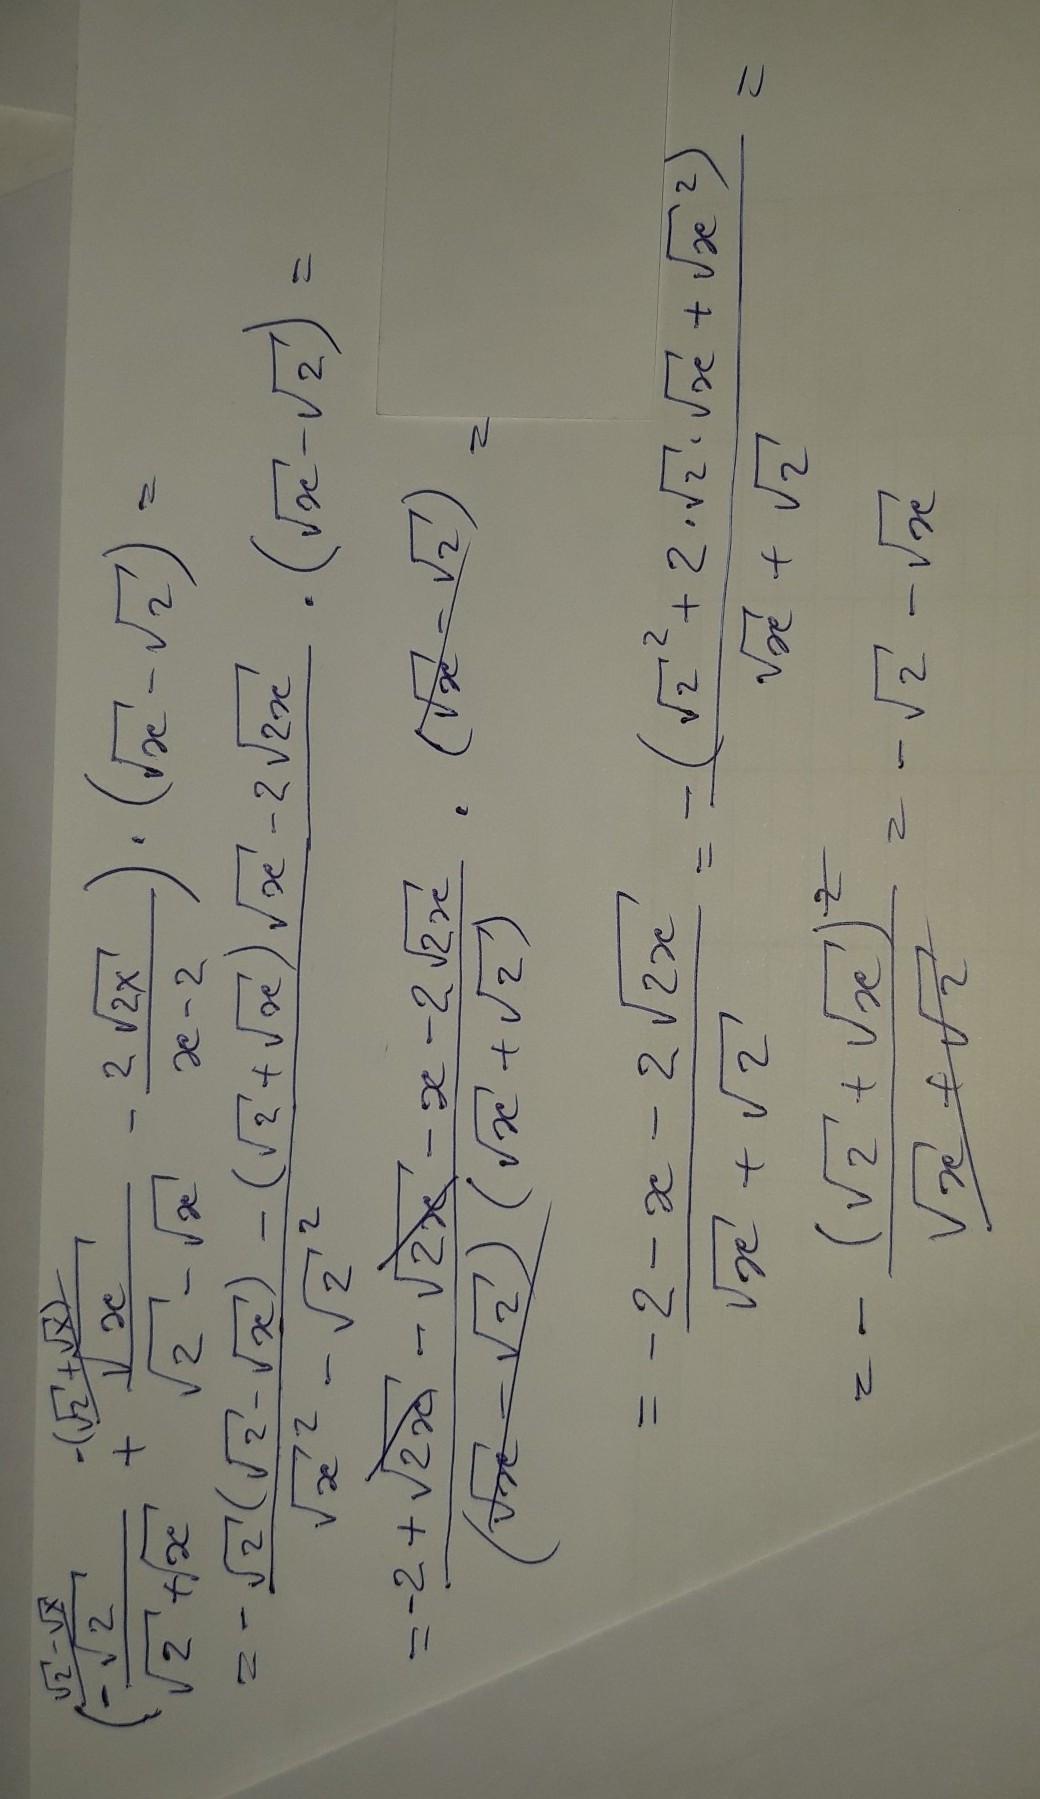 ·(√2+√x)
√2-√x
(-√2/(√2+√x) + √x/(√2-√x) - 2√2x/(x-2)) · (√x-√2) =
= -√2(√2-√x) - (√2+√x)√x - 2√2x / (√x² - √2²) · (√x-√2) =
= -2+√2x - √2x - x - 2√2x / ((√x-√2)(√x+√2)) · (√x-√2) =
= -2-x-2√2x / (√x+√2) = -(√2²+2·√2·√x+√x²) / (√x+√2) =
= -(√2+√x)² / (√x+√2) = -√2-√x